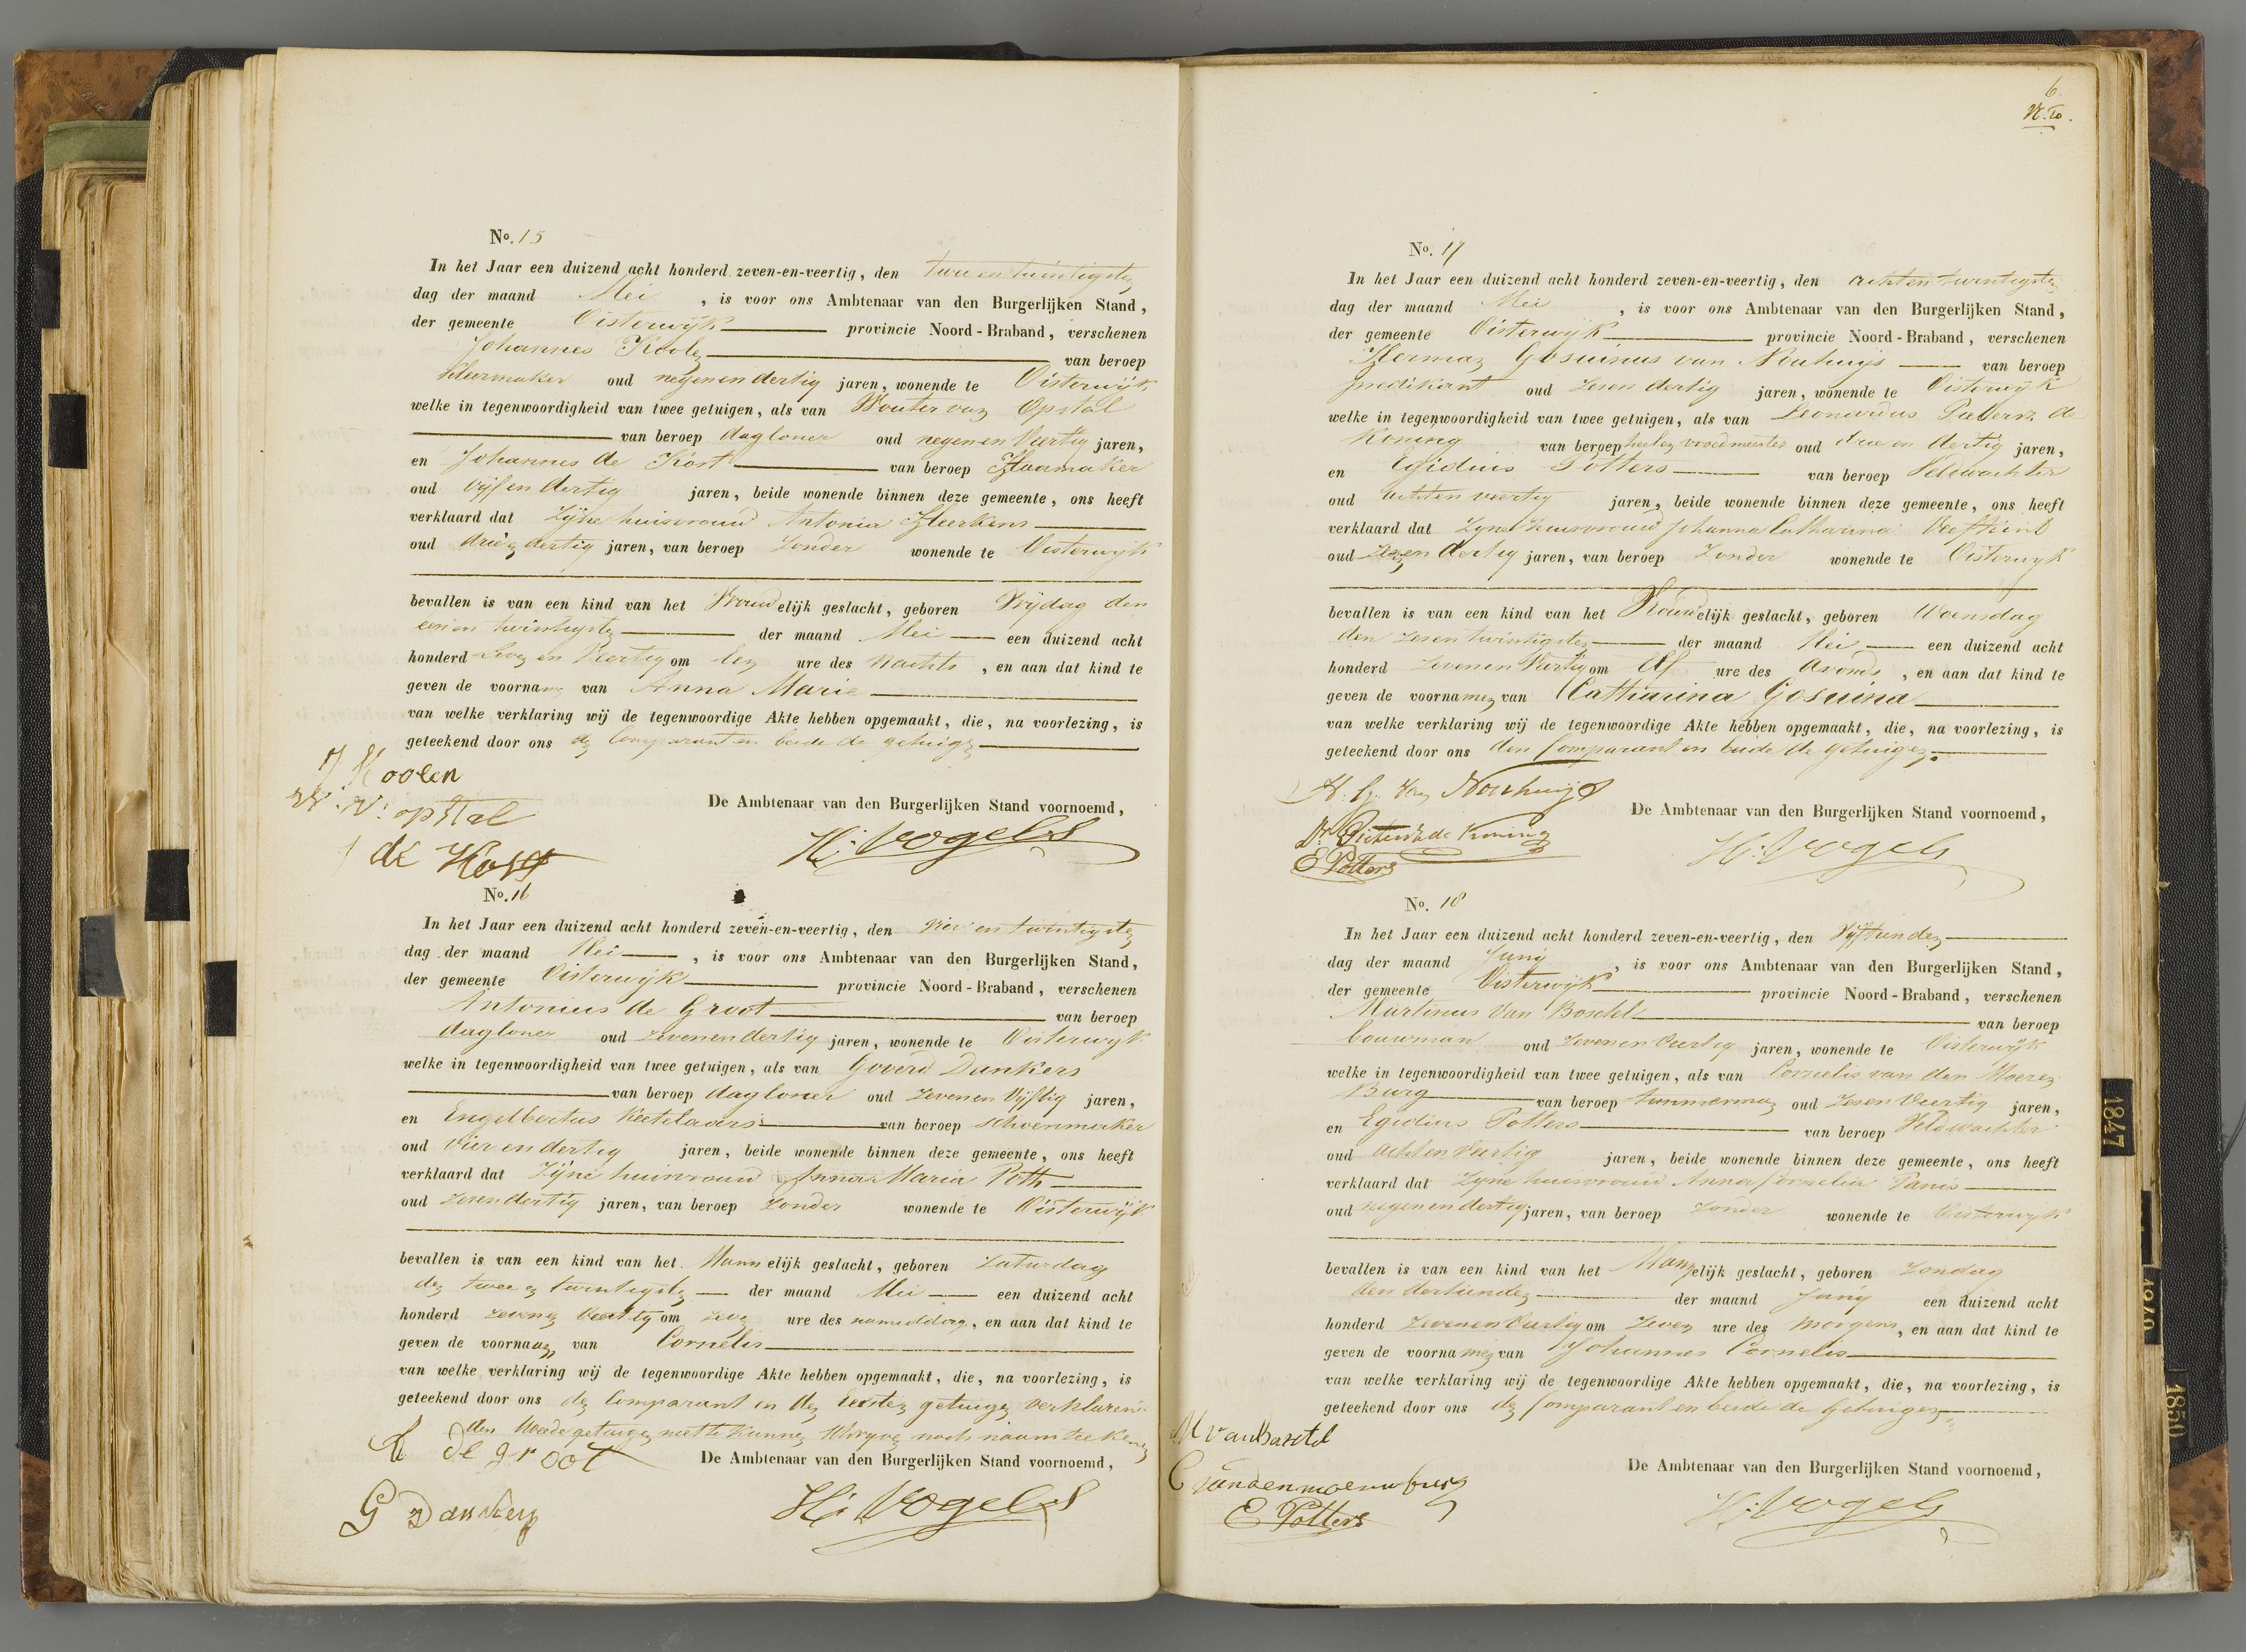 No. 15
In het Jaar een duizend acht honderd zeven-en-veertig, den twee en twintigsten
dag der maand Mei, is voor ons Ambtenaar van den Burgerlijken Stand,
der gemeente Oisterwijk provincie Noord-Braband, verschenen
Johannes Koolen van beroep
kleermaker oud negen en dertig jaren, wonende te Oisterwijk
welke in tegenwoordigheid van twee getuigen, als van Wouter van Opstal
van beroep dagloner oud negen en Veertig jaren,
en Johannes de Kort van beroep Haamaker
oud vijf en dertig jaren, beide wonende binnen deze gemeente, ons heeft
verklaard dat Zijne huisvrouw Antonia Heerkens
oud drie en dertig jaren, van beroep Zonder wonende te Oisterwijk
bevallen is van een kind van het Vrouwelijk geslacht, geboren Vrijdag den
een en twintigsten der maand Mei een duizend acht
honderd Zeven en Veertig om tien ure des Nachts, en aan dat kind te
geven de voornamen van Anna Marie
van welke verklaring wij de tegenwoordige Akte hebben opgemaakt, die, na voorlezing, is
geteekend door ons den Comparant en beide de getuigen
J Koolen
W. V. opstal
J de Kort
De Ambtenaar van den Burgerlijken Stand voornoemd,
H: Vogels
No. 16
In het Jaar een duizend acht honderd zeven-en-veertig, den vier en twintigsten
dag der maand Mei, is voor ons Ambtenaar van den Burgerlijken Stand,
der gemeente Oisterwijk provincie Noord-Braband, verschenen
Antonius de Groot van beroep
dagloner oud zeven en dertig jaren, wonende te Oisterwijk
welke in tegenwoordigheid van twee getuigen, als van Goverd Dankers
van beroep dagloner oud Zeven en Vijftig jaren,
en Engelbertus Ketelaars van beroep schoenmaker
oud Vier en dertig jaren, beide wonende binnen deze gemeente, ons heeft
verklaard dat Zijne huisvrouw Anna Maria Poth
oud Zes en dertig jaren, van beroep Zonder wonende te Oisterwijk
bevallen is van een kind van het Mannelijk geslacht, geboren Zaturdag
den twee en twintigsten der maand Mei een duizend acht
honderd zeven en Veertig om zeven ure des namiddags, en aan dat kind te
geven de voornaam van Cornelis
van welke verklaring wij de tegenwoordige Akte hebben opgemaakt, die, na voorlezing, is
geteekend door ons den Comparant en den eersten getuigen verklarende
den tweede getuigen niet te kunnen schryven noch naamteekenen
A de groot
G Dankers
De Ambtenaar van den Burgerlijken Stand voornoemd,
H: Vogels
6.
No. 17
In het Jaar een duizend acht honderd zeven-en-veertig, den acht en twintigsten
dag der maand Mei, is voor ons Ambtenaar van den Burgerlijken Stand,
der gemeente Oisterwijk provincie Noord-Braband, verschenen
Herman Gosuinus van Nouhuijs van beroep
predikant oud Zes en dertig jaren, wonende te Oisterwijk
welke in tegenwoordigheid van twee getuigen, als van Leonardus Pieterz. de
Koning van beroep heel en vroedmeester oud drie en dertig jaren,
en Egidius Potters van beroep Veldwachter
oud acht en veertig jaren, beide wonende binnen deze gemeente, ons heeft
verklaard dat Zyne huisvrouw Johanna Catharina
oud Zes en dertig jaren, van beroep Zonder wonende te Oisterwyk
bevallen is van een kind van het Vrouwelijk geslacht, geboren Woensdag
den Zes en twintigsten der maand Mei een duizend acht
honderd Zeven en Veertig om Elf ure des avonds, en aan dat kind te
geven de voornamen van Catharina Gosuina
van welke verklaring wij de tegenwoordige Akte hebben opgemaakt, die, na voorlezing, is
geteekend door ons den Comparant en beide de getuigen.
H. G. van Nouhuijs
Dr. Pieterz de Koning
E Potters
De Ambtenaar van den Burgerlijken Stand voornoemd,
H: Vogels
No. 18
In het Jaar een duizend acht honderd zeven-en-veertig, den Vijftienden
dag der maand Junij, is voor ons Ambtenaar van den Burgerlijken Stand,
der gemeente Oisterwijk provincie Noord-Braband, verschenen
Martinus Van Boxtel van beroep
bouwman oud Zeven en Veertig jaren, wonende te Oisterwijk
welke in tegenwoordigheid van twee getuigen, als van Cornelis van den Moeren
Burg van beroep timmerman oud Zes en Veertig jaren,
en Egidius Potters van beroep Veldwachter
oud acht en Veertig jaren, beide wonende binnen deze gemeente, ons heeft
verklaard dat Zyne huisvrouw Anna Cornelia Panis
oud negen en dertig jaren, van beroep Zonder wonende te Oisterwyk
bevallen is van een kind van het Mannelijk geslacht, geboren Zondag
den dertienden der maand Junij een duizend acht
honderd Zeven en Veertig om Zeven ure des Morgens, en aan dat kind te
geven de voornamen van Johannes Cornelis
van welke verklaring wij de tegenwoordige Akte hebben opgemaakt, die, na voorlezing, is
geteekend door ons den Comparant en beide de Getuigen
M van Boxtel
C vandenmoerenburg
E Potters
De Ambtenaar van den Burgerlijken Stand voornoemd,
H: Vogels
1847
1849
1850